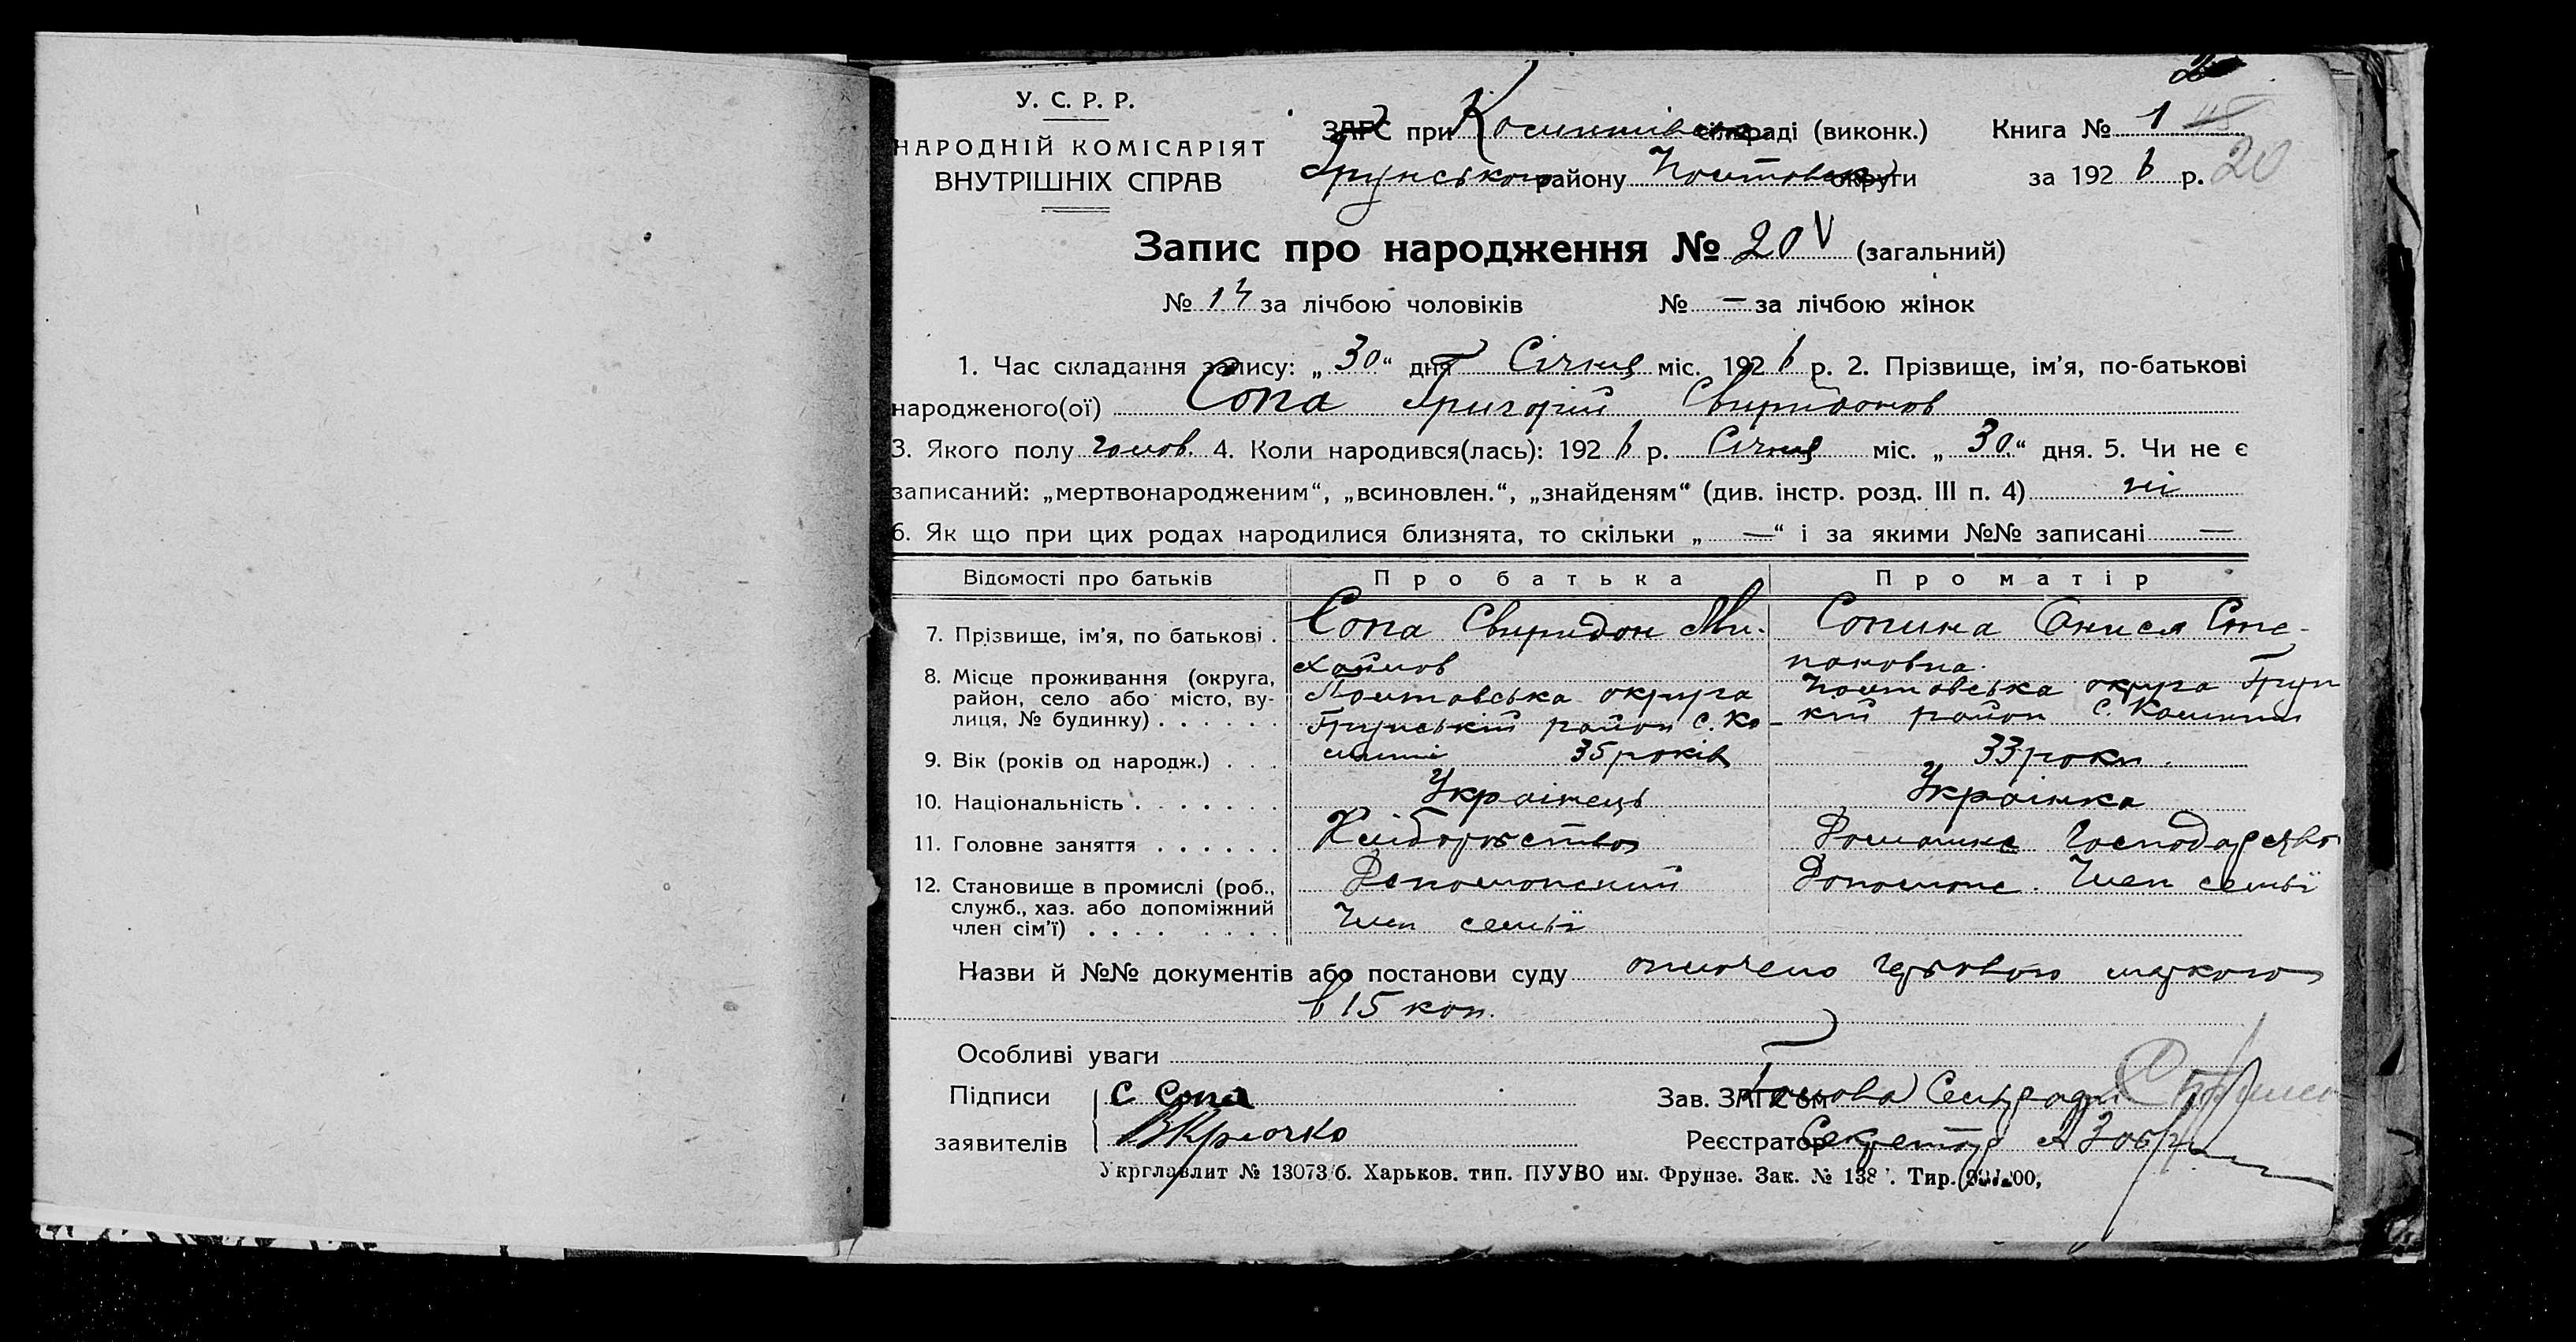 2
У. С. Р. Р.
НАРОДНІЙ КОМІСАРІЯТ
ВНУТРІШНІХ СПРАВ
ЗАГС при сільраді (виконк.) Книга № 1
Грунського району Полтавськ округи за 1926 р. 20
Запис про народження № 20 V (загальний)
№ 14 за лічбою чоловіків № — за лічбою жінок
1. Час складання запису: „ 30 “ дня Січня міс. 1926 р. 2. Прізвище, ім’я, по-батькові
народженого(ої) Сопа Григорій Свиридонов
3. Якого полу чолов. 4. Коли народився(лась): 1926 р. Січня міс. „ 30 “ дня. 5. Чи не є
записаний: „мертвонародженим“, „всиновлен.“, „знайденям“ (див. інстр. розд. III п. 4) ні
6. Як що при цих родах народилися близнята, то скільки „ — “ і за якими №№ записані —
Відомості про батьків Про батька Про матір
7. Прізвище, ім’я, по батькові . Сопа Свиридон Ми- Сопина Онися Сте-
хайлов пановна.
8. Місце проживання (округа, район, село або місто, вулиця, № будинку) . . . . . . Полтавська округа Полтавська округа Грун
Грунський район с. Ко кій район с.
9. Вік (років од народж.) . . . 35 років 33 роки.
10. Національність . . . . . . . Українець Українка
11. Головне заняття . . . . . . Хліборобство Домашнє Господарство
12. Становище в промислі (роб., служб., хаз. або допоміжний член сім’ї) . . . . . . . . Член семьї Допомож. Член семьї
Назви й №№ документів або постанови суду оплочено гербовою маркою
в 15 коп.
Особливі уваги
Підписи С Сопа Зав. ЗАГС’ом Голова Сельради
заявителів В Крючко Реєстратор Секретар
Укрглавлит № 13073/б. Харьков. тип. ПУУВО им. Фрунзе. Зак. № 138 . Тир.